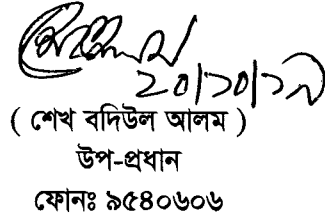 ২০/১০/১৯
( শেখ বদিউল আলম )
উপ-প্রধান
ফোনঃ ৯৫৪০৬০৬